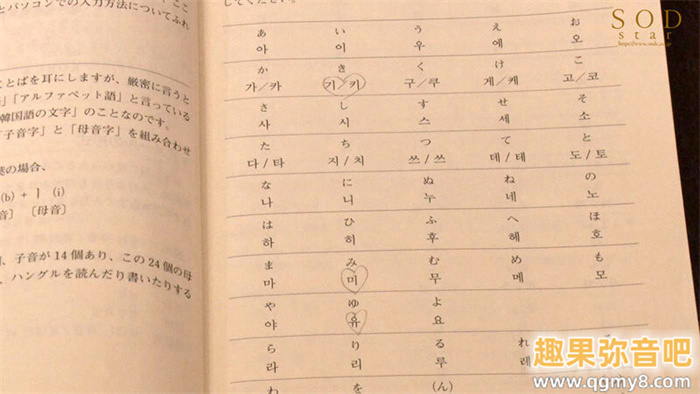 とパソコンでの入力方法についてふれ
ことばを耳にしますが、厳密に言うと
「アルファベット語」と言っている
韓国語の文字」のことなのです。
「子音字」と「母音字」を組み合わせ
の場合、
(b) + ㅣ (i)
音] [母音]
、子音が 14 個あり、この 24 個の母
、ハングルを読んだり書いたりする
してください。
あ い う え お
아 이 우 에 오
か き く け こ
가/카 기/키 구/쿠 게/케 고/코
さ し す せ そ
사 시 스 세 소
た ち つ て と
다/타 지/치 쓰/쓰 데/테 도/토
な に ぬ ね の
나 니 누 네 노
は ひ ふ へ ほ
하 히 후 헤 호
ま み む め も
마 미 무 메 모
や ゆ よ
야 유 요
ら り る れ
라 리 루 레
わ を (ん)
SOD
star
趣果弥音吧
www.qgmy8.com